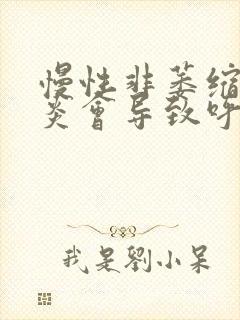 慢性非萎缩
炎會导致呼
我是劉小呆